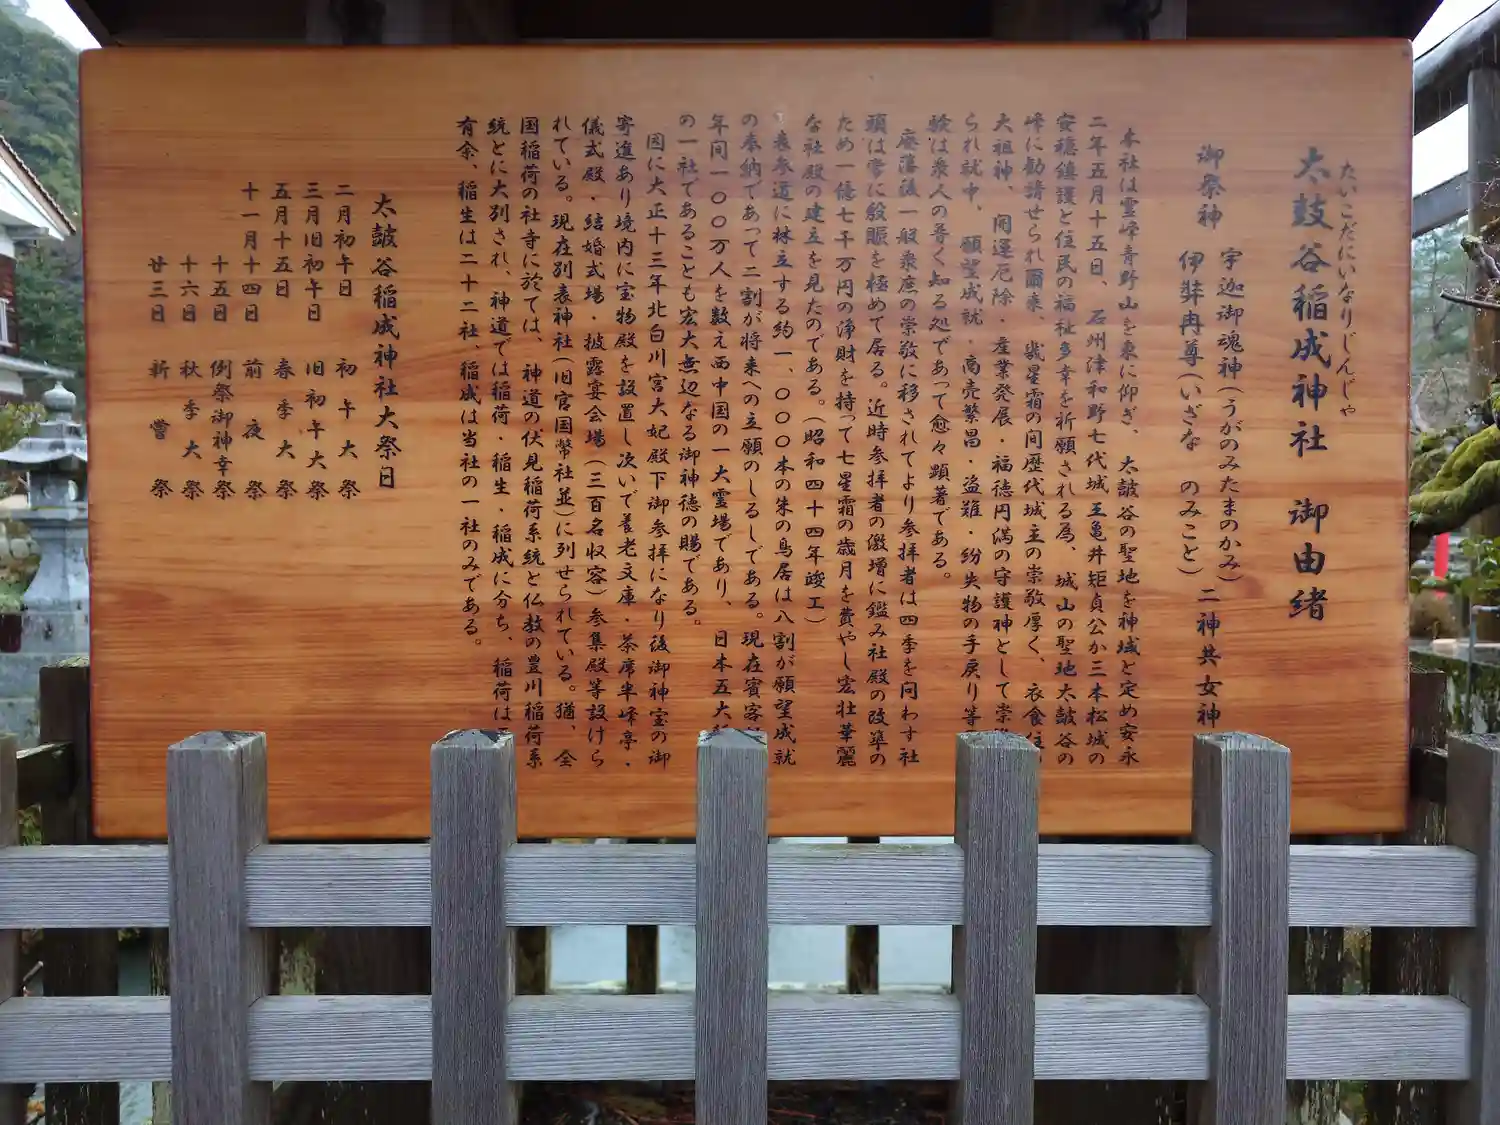 たいこだにいなりじんじゃ
太鼓谷稲成神社 御由緒
御祭神 宇迦御魂神(うがのみたまのかみ)
伊弉冉尊(いざな のみこと) 二神共女神
本社は霊峰青野山を東に仰ぎ、太皷谷の聖地を神域と定め安永
二年五月十五日、石州津和野七代城主亀井矩貞公か三本松城の
安穏鎮護と住民の福祉多幸を祈願される為、城山の聖地太皷谷の
峰に勧請せられ爾来、幾星霜の間歴代城主の崇敬厚く、衣食住
大祖神、開運厄除・産業発展・福徳円満の守護神として崇
られ就中、願望成就・商売繁昌・盗難・紛失物の手戻り等
験は衆人の普く知る処であって愈々顕著である。
廃藩後一般衆庶の崇敬に移されてより参拝者は四季を問わす社
頭は常に殷賑を極めて居る。近時参拝者の激増に鑑み社殿の改築の
ため一億七千万円の浄財を持って七星霜の歳月を費やし宏壮華麗
な社殿の建立を見たのである。(昭和四十四年竣工)
表参道に林立する約一、〇〇〇本の朱の鳥居は八割が願望成就
の奉納であって二割が将来への立願のしるしである。現在賓客
年間一〇〇万人を数え西中国の一大霊場であり、日本五大
の一社であることも宏大無辺なる御神徳の賜である。
因に大正十三年北白川宮大妃殿下御参拝になり後御神宝の御
寄進あり境内に宝物殿を設置し次いで養老文庫・茶席半峰亭・
儀式殿・結婚式場・披露宴会場(三百名収容)参集殿等設けら
れている。現在別表神社(旧官国幣社並)に列せられている。猶、全
国稲荷の社寺に於ては、神道の伏見稲荷系統と仏教の豊川稲荷系
統とに大別され、神道では稲荷・稲生・稲成に分ち、稲荷は
有余、稲生は二十二社、稲成は当社の一社のみである。
太皷谷稲成神社大祭日
二月初午日 初午大祭
三月旧初午日 旧初午大祭
五月十五日 春季大祭
十一月十四日 前夜祭
十五日 例祭御神幸祭
十六日 秋季大祭
廿三日 新嘗祭